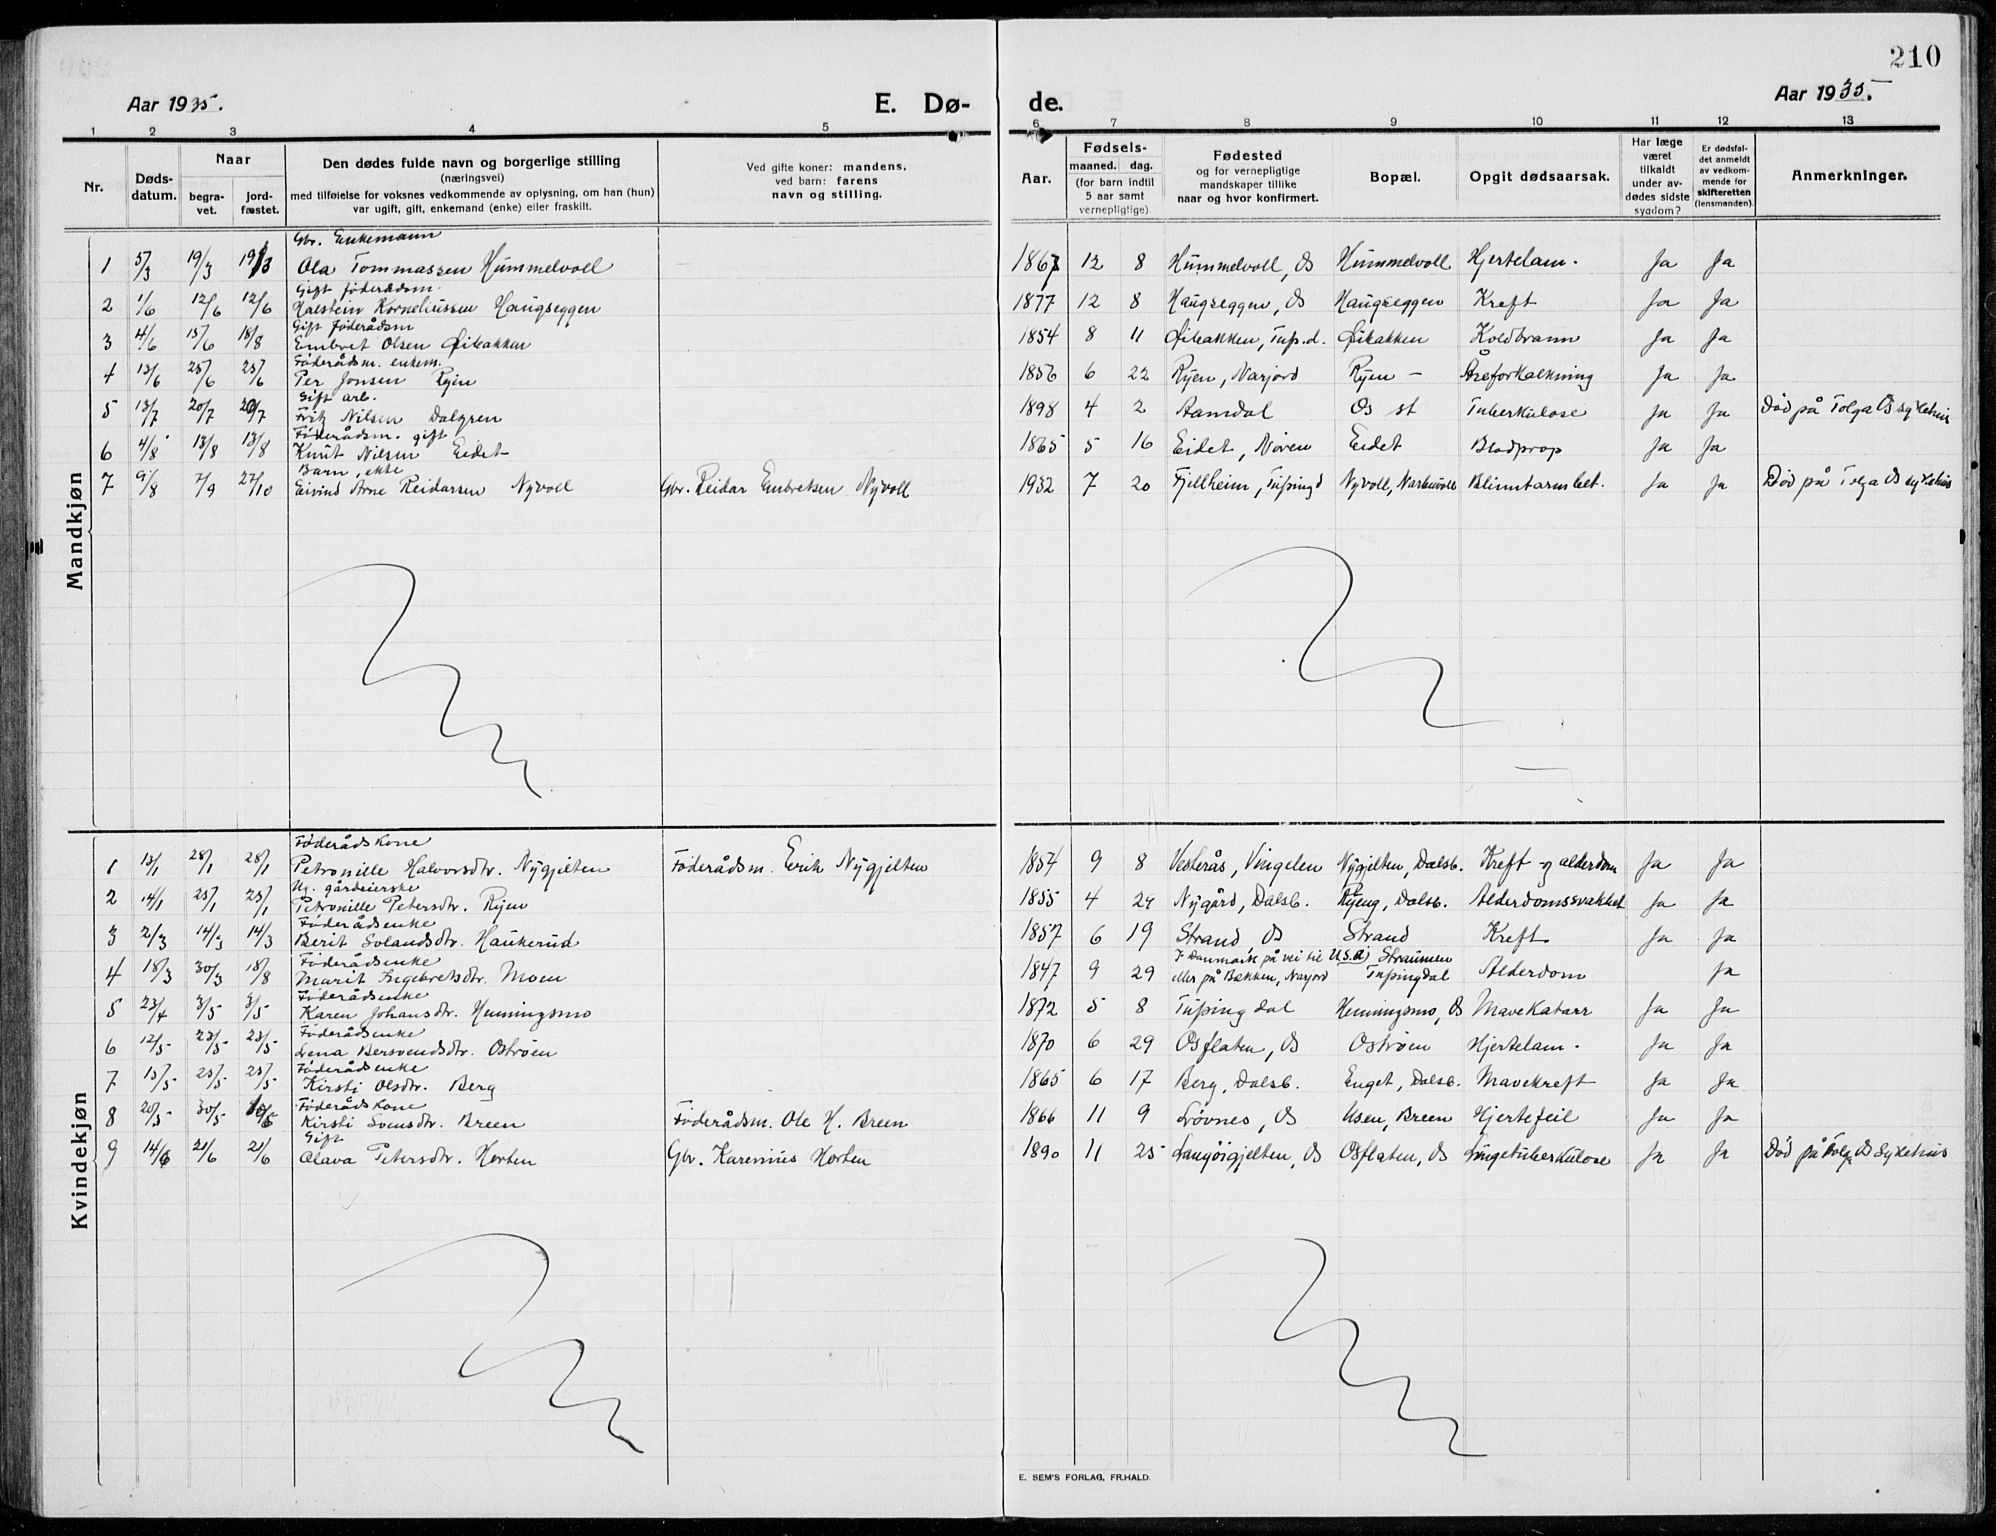 210
Aar 1935.
E. Dø-
de.
Aar 1935.
1 2 3 4 5 6 7 8 9 10 11 12 13
Nr.
Døds-
datum.
Naar
begra-
vet.
jord-
fæstet.
Den dødes fulde navn og borgerlige stilling
(næringsvei)
med tilføielse for voksnes vedkommende av oplysning, om han (hun)
var ugift, gift, enkemand (enke) eller fraskilt.
Ved gifte koner: mandens,
ved barn: farens
navn og stilling.
Aar.
Fødsels-
maaned. dag.
(for barn indtil
5 aar samt
vernepligtige)
Fødested
og for vernepligtige
mandskaper tillike
naar og hvor konfirmert.
Bopæl.
Opgit dødsaarsak.
Har læge
været
tilkaldt
under av-
dødes sidste
sygdom?
Er dødsfal-
det anmeldt
av vedkom-
mende for
skifteretten
(lensmanden).
Anmerkninger.
Mandkjøn
Gbr. Enkemann
1 5/3 19/3 19/3 Ola Tommassen Hummelvoll 1867 12 8 Hummelvoll, Os Hummelvoll Hjertelam. Ja Ja
Gift føderådsm.
2 1/6 12/6 12/6 Halstein Korneliussen Haugseggen 1877 12 8 Haugseggen, Os Haugseggen Kreft Ja Ja
Gift føderådsm
3 4/6 15/6 18/8 Embret Olsen Øibakken 1854 8 11 Øibakken, Tufs.d. Øibakken Koldbrann Ja Ja
Føderådsm. enkem.
4 13/6 25/6 25/6 Per Jonsen Ryen 1856 6 22 Ryen, Narjord Ryen - Åreforkalkning Ja Ja
Gift arb.
5 13/7 20/7 20/7 Fritz Nilsen Dalgren 1898 4 2 Aamdal Os st Tuberkulose Ja Ja Død på Tolga Os sykehus
Føderådsm. gift
6 4/8 13/8 13/8 Knut Nilsen Eidet 1865 5 16 Eidet, Nøren Eidet Blodprop Ja Ja
Barn, ekte
7 9/8 7/9 27/10 Eivind Arne Reidarsen Nyvoll Gbr. Reidar Embretsen Nyvoll 1932 7 20 Fjellheim, Tufsingd Nyvoll, Narbuvoll Blinntarmbet. Ja Ja Død på Tolga Os sykehus
Kvindekjøn
Føderådskone
1 13/1 28/1 28/1 Petronille Halvorsdtr. Nygjelten Føderådsm. Erik Nygjelten 1854 9 8 Vesterås, Vingelen Nygjelten, Dalsb. Kreft og alderdom Ja Ja
Ug. gårdeierske
2 14/1 25/1 25/1 Petronille Petersdtr. Ryen 1855 4 24 Nygård, Dalsb. Ryeng, Dalsb. Alderdomssvakhet Ja Ja
Føderådsenke
3 2/3 14/3 14/3 Berit Solandsdtr. Haukerud 1857 6 19 Strand, Os Strand Kreft Ja Ja
Føderådsenke I Danmark på vei til U.S.A) Straumen
4 18/3 30/3 18/8 Marit Ingebretsdtr. Moen 1847 9 29 eller på Bakken, Narjord Tufsingdal Alderdom Ja
Føderådsenke
5 23/4 3/5 3/5 Karen Johansdtr. Henningsmo 1872 5 8 Tufsingdal Henningsmo, Os Mavekatarr Ja Ja
Føderådsenke
6 12/5 23/5 23/5 Lena Bersvendsdtr. Osträen 1870 6 29 Osflaten, Os Osträen Hjertelam. Ja Ja
Føderådsenke
7 15/5 25/5 25/5 Kirsti Olsdtr. Berg 1865 6 17 Berg, Dalsb. Enget, Dalsb. Mavekreft Ja Ja
Føderådskone
8 20/5 30/5 30/5 Kirsti Svensdtr. Breen Føderådsm. Ole H. Breen 1866 11 9 Løvnes, Os Usen, Breen Hjertefeil Ja Ja
Gift
9 14/6 21/6 21/6 Olava Petersdtr. Horten Gbr. Karenius Horten 1890 11 25 Langøigjelten, Os Osflaten, Os Lungetuberkulose Ja Ja Død på Tolga Os sykehus
E. SEM'S FORLAG, FR.HALD.